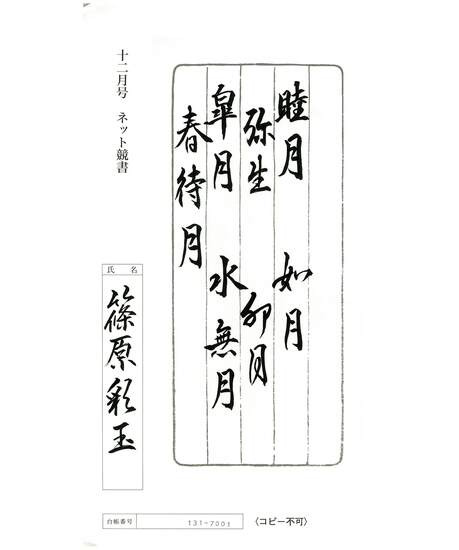 睦月 如月
弥生 卯月
皐月 水無月
春待月
十二月号 ネット競書
氏名
篠原彩玉
台帳番号 131-7001
〈コピー不可〉